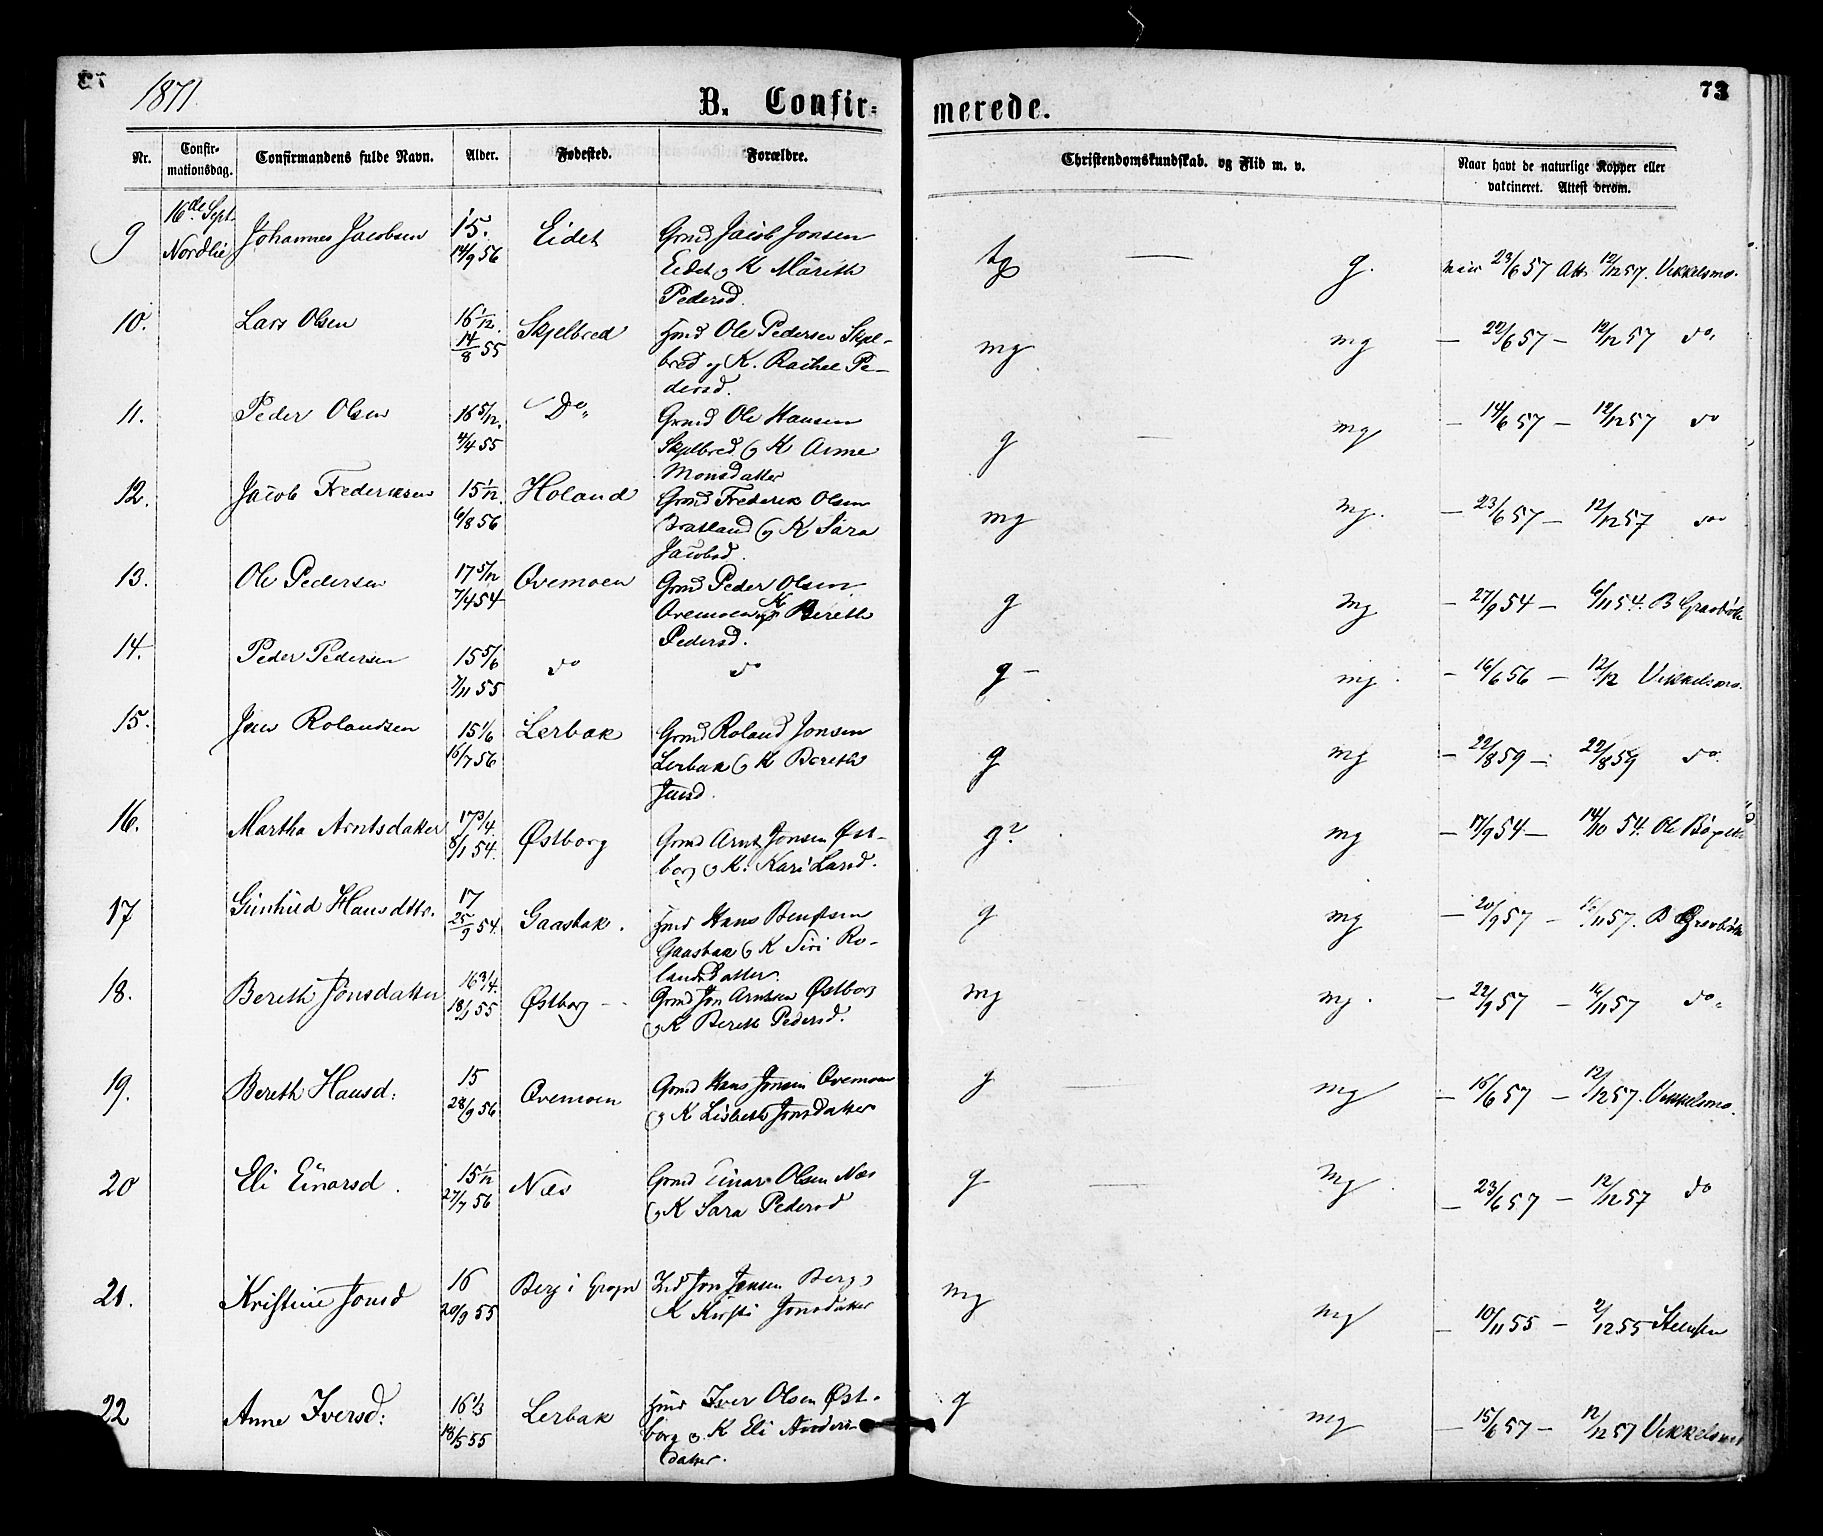 1871.
B. Confir-
merede.
73
Nr.
Confir-
mationsdag.
Confirmandens fulde Navn.
Alder.
Fødested.
Forældre.
Christendomskundskab. og Flid m. v.
Naar havt de naturlige Kopper eller
vakcineret. Attest derom.
9 16de Sept. Johannes Jacobsen 15. Eidet Grmd Jacob Jonsen tg — g. 23/6 57 Att. 12/12 57. Vekkelsmo.
Nordlie 14/9 56 Eidet og K Marith
Pedersd.
10. Lars Olsen 16 1/12. Skjelbred Hmd Ole Pedersen Skjel- mg mg — 22/6 57 — 12/12 57 do.
14/8 55 bred og K. Rachel Pe-
dersd.
11. Peder Olsen 16 5/12. Do. Grmd Ole Hansen g — mg — 14/6 57 — 12/12 57 do
4/4 55 Skjelbred og K Anne
Monsdatter
12. Jacob Frederiksen 15 1/12. Holand Grmd Frederik Olsen mg mg. — 23/6 57 — 12/12 57 do
6/8 56 og K Sara
Jacobsd.
13. Ole Pedersen 17 5/12 Ovemoen Grmd Peder Olsen g mg — 27/9 54 — 6/11 54. B
7/4 54 Ovemoen og K Bereth
Pedersd.
14. Peder Pedersen 15 5/6 do do g — mg. — 16/6 56 — 12/12 Vekkelsmo.
7/11 55
15. Jon Rolandsen 15 1/6 Lerbak Grmd Roland Jonsen g mg — 22/8 59 — 22/8 59 do.
16/7 56 Lerbak og K Bereth
Jonsd.
16. Martha Arntsdatter 17 3/4. Østborg Grmd Arnt Jonsen Øst- g? mg — 17/9 54 — 14/10 54. Ole
8/1 54. borg og K. Kari Larsd.
17 Gunhild Hansdttr. 17 Gaasbak. Hmd Hans Bentsen g mg — 20/9 57 — /11 57. B
25/9 54. Gaasbak og K Siri Ro-
landsdatter.
18. Bereth Jonsdatter 16 3/4. Østborg — Grmd Jon Arntsen Østborg mg mg. — 22/9 57 — 16/11 57 do.
18/1 55 og K Bereth Pedersd.
19. Bereth Hansd: 15 Ovemoen Grmd Hans Jonsen Ovemoen g — mg — 16/6 57 — 12/12 57. Vekkelsmo.
28/9 56 og K Lisbeth Jonsdatter
20 Eli Einarsd. 15 1/12 Næs Grmd Einar Olsen Næs g — mg. — 23/6 57 — 12/12 57 do
27/7 56 og K Sara Pedersd
21. Kristine Jonsd 16 Berg i Grong Jon Jensen Berg og mg mg — 10/11 55 — 2/12 55
20/9 55 K Kirsti Jonsdatter
22 Anne Iversd: 16 1/3 Lerbak Hmd Iver Olsen Øst- g mg — 15/6 57 — 12/12 57 Vekkelsmo
18/5 55 borg og K Eli Anders-
datter.